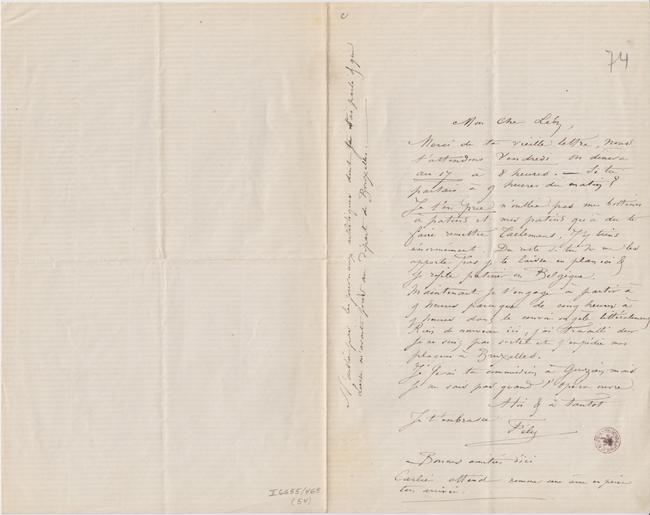 74
Mon cher
Merci de ta vieille lettre, nous
t'attendons Vendredi. On dinera
au 17 à 8 heures. — Si tu
partais à 9 heures du matin?
Je t'en prie n'oublie pas mes bottines
à patins et mes patins qu'a du te
faire remettre Taelemans. J'y tiens
énormément. Du reste si tu ne les
apporte pas je te laisse en plan ici &
je reste patiner en Belgique.
Maintenant je t'engage à partir à
9 heures parceque de cinq heures à
9 heures dans le on gèle littéralement
Rien de nouveau ici, j'ai travaillé dur
Je ne suis pas sorti et j'expédie mes
plaques à Bruxelles.
Je ferai ta commission à mais
je ne sais pas quand l'Opéra ouvre
à toi & à tantot
Je t'embrasse
Fély
Bonnes amitiés d'ici
attend comme une âme en peine
ton arrivée.
N'oublie pas les journaux dont je t'ai parlé & que
au départ de Bruxelles.